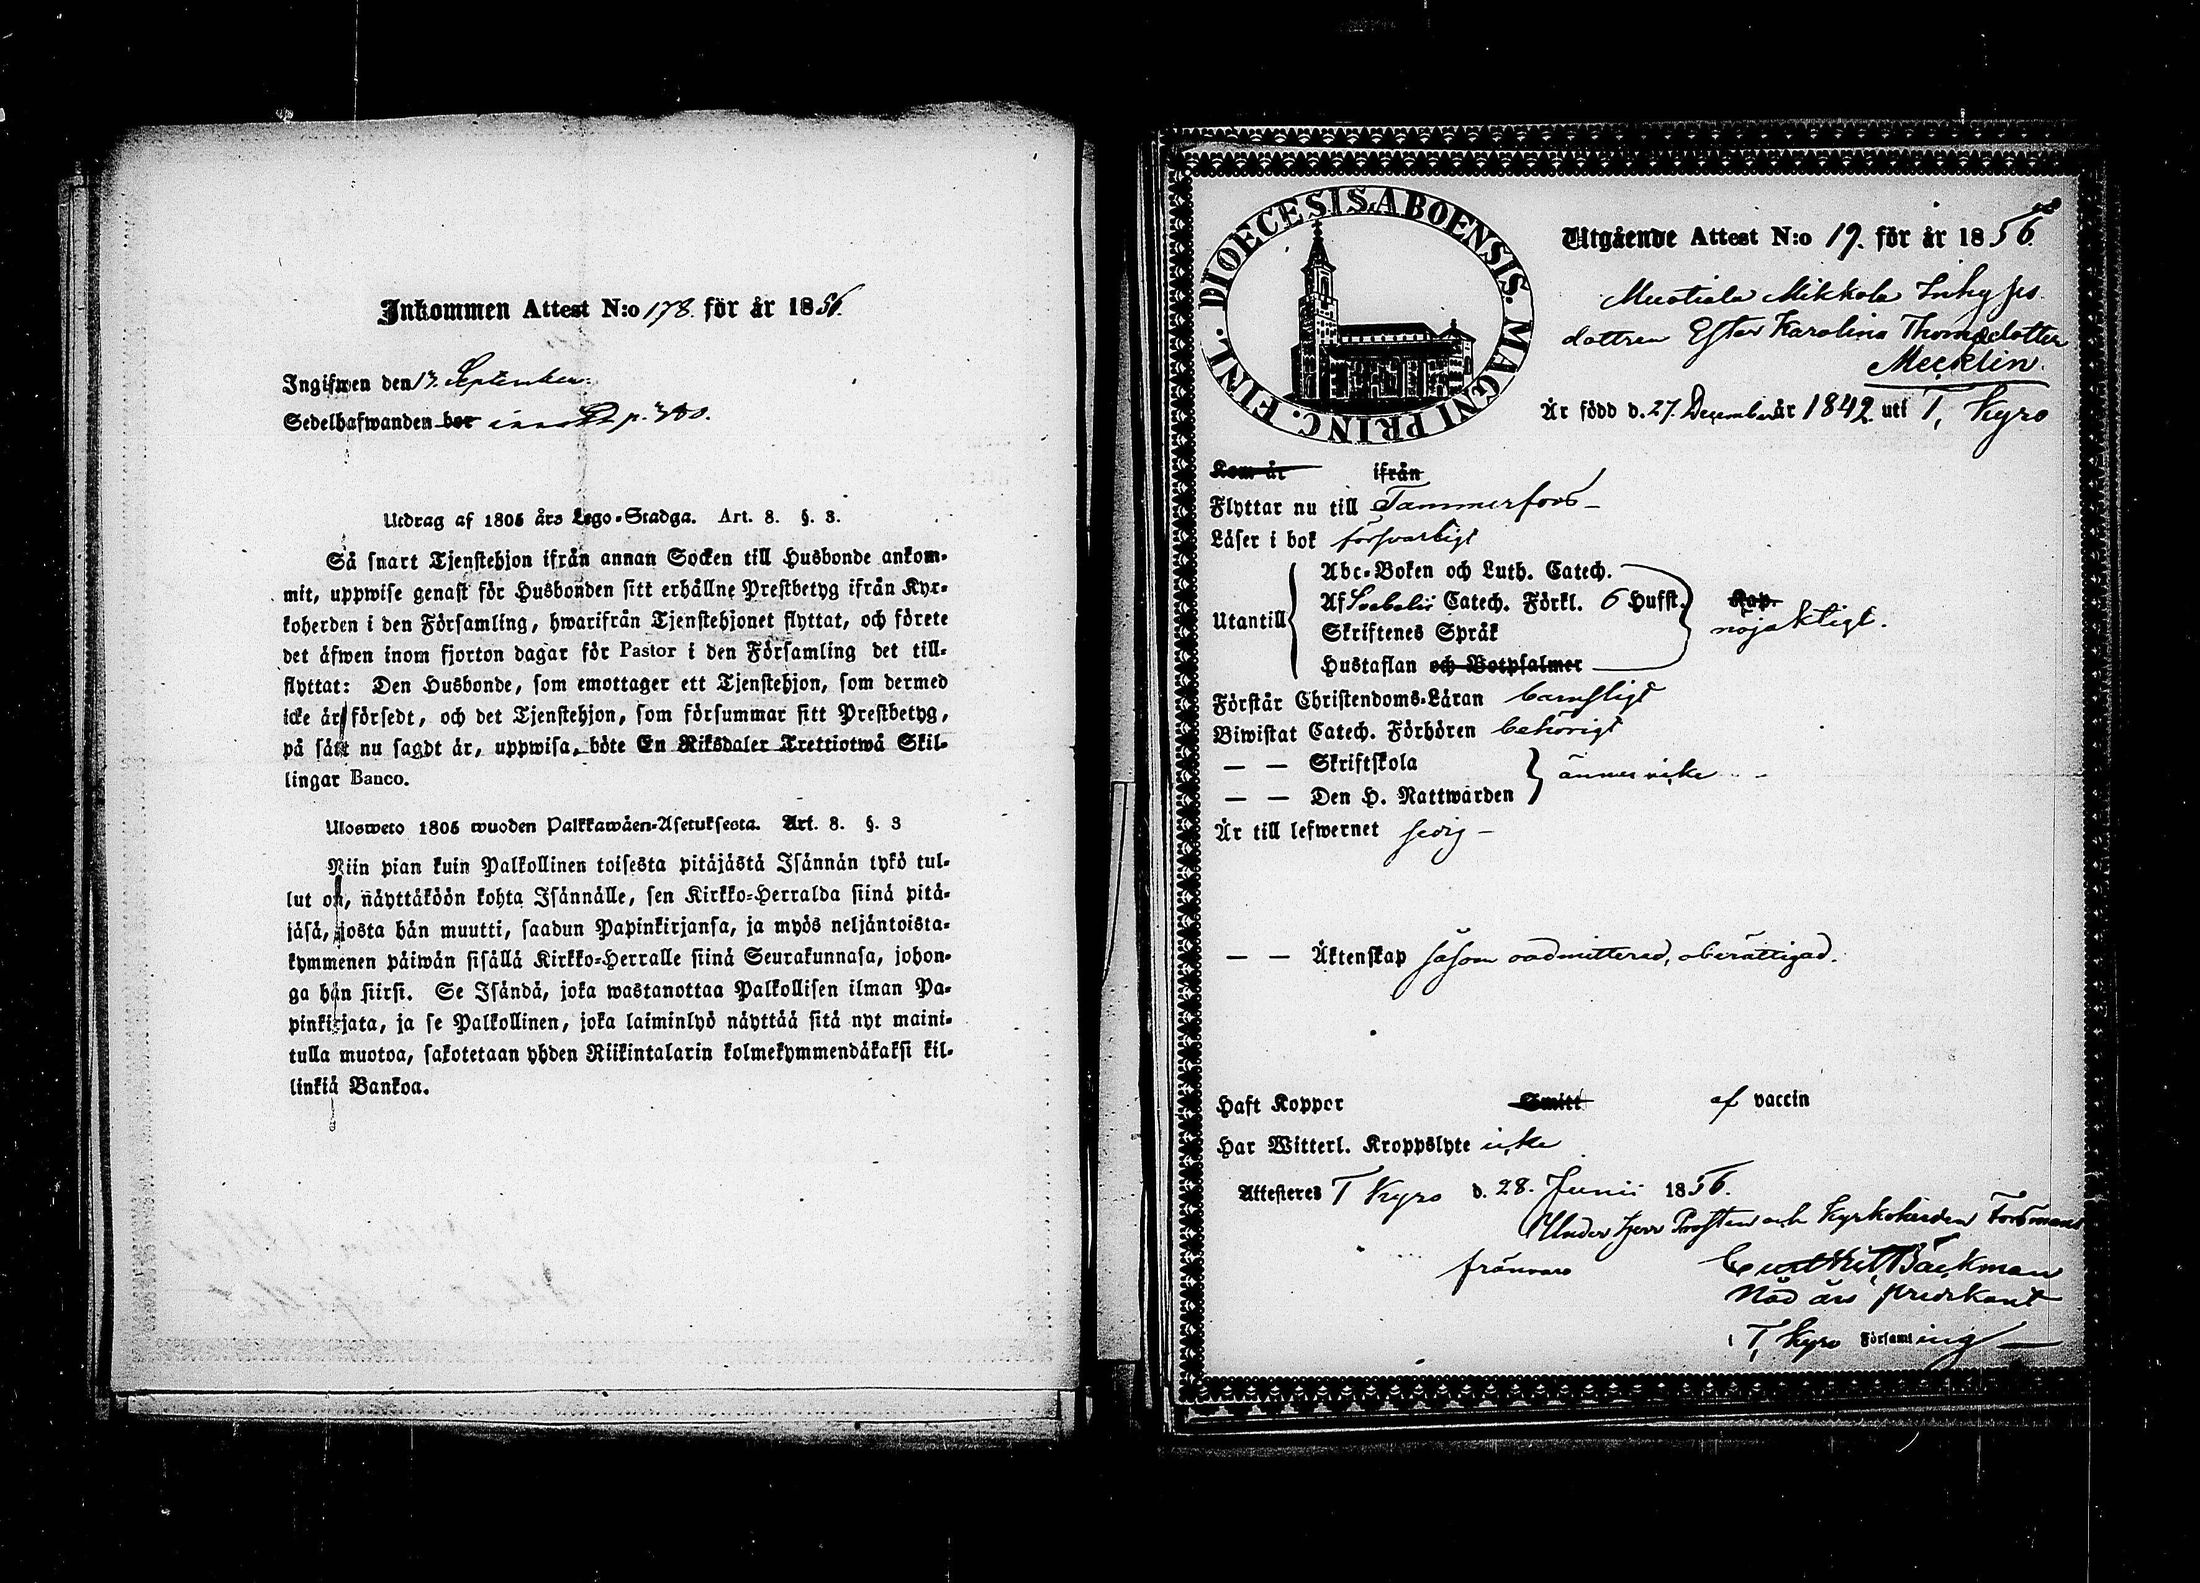 Inkommen Attest N:o 178. för år 1856.
Ingifwen den 13. September.
Sedelhafwanden bor p. 380.
Utdrag af 1805 års Lego-Stadga. Art. 8. §. 3.
Så snart Tjenstehjon ifrån annan Socken till Husbonde ankom-
mit, uppwise genast för Husbonden sitt erhållne Prestbetyg ifrån Kyr-
koherden i den Församling, hwarifrån Tjenstehjonet flyttat, och förete
det äfwen inom fjorton dagar för Pastor i den Församling det till-
flyttat: Den Husbonde, som emottager ett Tjenstehjon, som dermed
icke är försedt, och det Tjenstehjon, som försummar sitt Prestbetyg,
på sätt nu sagdt är, uppwisa, böte En Riksdaler Trettiotwå Skil-
lingar Banco.
Ulosweto 1805 wuoden Palkkawäen-Asetuksesta. Art. 8. §. 3
Niin pian kuin Palkollinen toisesta pitäjästä Isännän tykö tul-
lut on, näyttäköön kohta Isännälle, sen Kirkko-Herralda siinä pitä-
jäsä, josta hän muutti, saadun Papinkirjansa, ja myös neljäntoista-
kymmenen päiwän sisällä Kirkko-Herralle siinä Seurakunnasa, johon-
ga hän siirsi. Se Isändä, joka wastanottaa Palkollisen ilman Pa-
pinkirjata, ja se Palkollinen, joka laiminlyö näyttää sitä nyt maini-
tulla muotoa, sakotetaan yhden Riikintalarin kolmekymmendäkaksi kil-
linkiä Bankoa.
DIOECESIS ABOENSIS. MAGNI PRINC. FINL.
Utgående Attest N:o 19. för år 1856.
Muotiala Mikkola Inhyses
dottren Ester Karolina Thomædotter
Mecklin.
Är född d. 27. December år 1842 uti T. Kyro
Kom år ifrån
Flyttar nu till Tammerfors
Läser i bok försvarligt
Abc-Boken och Luth. Catech.
Af Svebelii Catech. Förkl. 6 Hufst. Kap.
Utantill nöjaktigt.
Skriftenes Språk
Hustaflan och Botpsalmer
Förstår Christendoms-Läran barnsligt
Biwistat Catech. Förhören behörigt
— — Skriftskola ännu icke
— — Den H. Nattwarden
Är till lefwernet sedig
— — Äktenskap såsom oadmitterad, oberättigad.
Haft Koppor Smitt af vaccin
Har Witterl. Kroppslyte icke
Attesteres T Kyro d. 28. Junii 1856.
Under Herr Prosten och Kyrkoherden Forsmans
frånvaro Backman
Nåd års predikant
i T. Kyro Församling